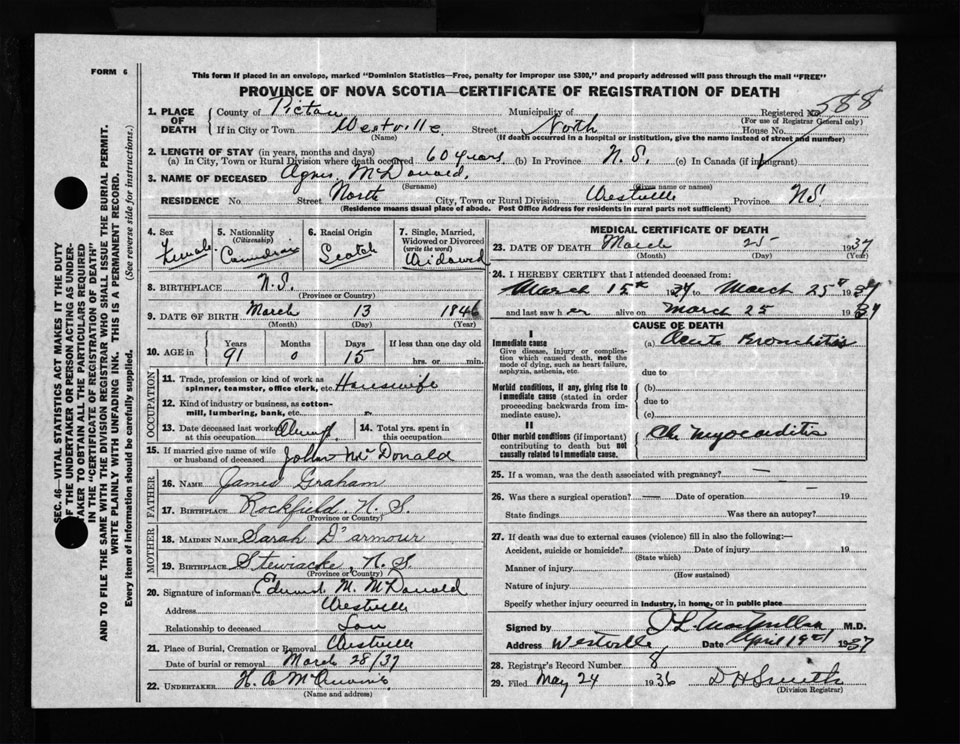 FORM 6
This form if placed in an envelope, marked "Dominion Statistics—Free, penalty for improper use $300," and properly addressed will pass through the mail "FREE"
PROVINCE OF NOVA SCOTIA—CERTIFICATE OF REGISTRATION OF DEATH
1. PLACE OF DEATH County of Pictou Municipality of Registered No. 588
(For use of Registrar General only)
If in City or Town Westville Street North House No.
(Name) (If death occurred in a hospital or institution, give the name instead of street and number)
2. LENGTH OF STAY (in years, months and days)
(a) In City, Town or Rural Division where death occurred 60 years (b) In Province N.S. (c) In Canada (if immigrant)
3. NAME OF DECEASED Agnes McDonald
(Surname) (Given name or names)
RESIDENCE No. Street North City, Town or Rural Division Westville Province N.S.
(Residence means usual place of abode. Post Office Address for residents in rural parts not sufficient)
4. Sex Female
5. Nationality (Citizenship) Canadian
6. Racial Origin Scotch
7. Single, Married, Widowed or Divorced (write the word) Widowed
8. BIRTHPLACE N.S.
(Province or Country)
9. DATE OF BIRTH March 13 1846
(Month) (Day) (Year)
10. AGE in Years 91 Months 0 Days 15 If less than one day old hrs. or min.
OCCUPATION
11. Trade, profession or kind of work as spinner, teamster, office clerk, etc. Housewife
12. Kind of industry or business, as cotton-mill, lumbering, bank, etc.
13. Date deceased last worked at this occupation
14. Total yrs. spent in this occupation
15. If married give name of wife or husband of deceased John McDonald
FATHER
16. NAME James Graham
17. BIRTHPLACE Rockfield, N.S.
(Province or Country)
MOTHER
18. MAIDEN NAME Sarah D'armour
19. BIRTHPLACE Stewiacke, N.S.
(Province or Country)
20. Signature of informant Edward M. McDonald
Address Westville
Relationship to deceased Son
21. Place of Burial, Cremation or Removal Westville
Date of burial or removal March 28/37
22. UNDERTAKER H. A.
(Name and address)
MEDICAL CERTIFICATE OF DEATH
23. DATE OF DEATH March 25 1937
(Month) (Day) (Year)
24. I HEREBY CERTIFY that I attended deceased from:
March 15th 1937 to March 25th 1937
and last saw her alive on March 25 1937
CAUSE OF DEATH
I
Immediate cause
Give disease, injury or complication which caused death, not the mode of dying, such as heart failure, asphyxia, asthenia, etc.
(a) Acute Bronchitis
due to
Morbid conditions, if any, giving rise to immediate cause (stated in order proceeding backwards from immediate cause).
(b)
due to
(c)
II
Other morbid conditions (if important) contributing to death but not causally related to immediate cause.
Ch. Myocarditis
25. If a woman, was the death associated with pregnancy? —
26. Was there a surgical operation? — Date of operation 19
State findings Was there an autopsy?
27. If death was due to external causes (violence) fill in also the following:—
Accident, suicide or homicide? Date of injury 19
(State which)
Manner of injury
(How sustained)
Nature of injury
Specify whether injury occurred in industry, in home, or in public place
Signed by M.D.
Address Westville Date April 1937
28. Registrar's Record Number 8
29. Filed May 24 1936 D H Smith
(Division Registrar)
SEC. 46—VITAL STATISTICS ACT MAKES IT THE DUTY
OF THE UNDERTAKER OR PERSON ACTING AS UNDER-
TAKER TO OBTAIN ALL THE PARTICULARS REQUIRED
IN THE "CERTIFICATE OF REGISTRATION OF DEATH"
AND TO FILE THE SAME WITH THE DIVISION REGISTRAR WHO SHALL ISSUE THE BURIAL PERMIT.
WRITE PLAINLY WITH UNFADING INK. THIS IS A PERMANENT RECORD.
Every item of information should be carefully supplied. (See reverse side for instructions.)